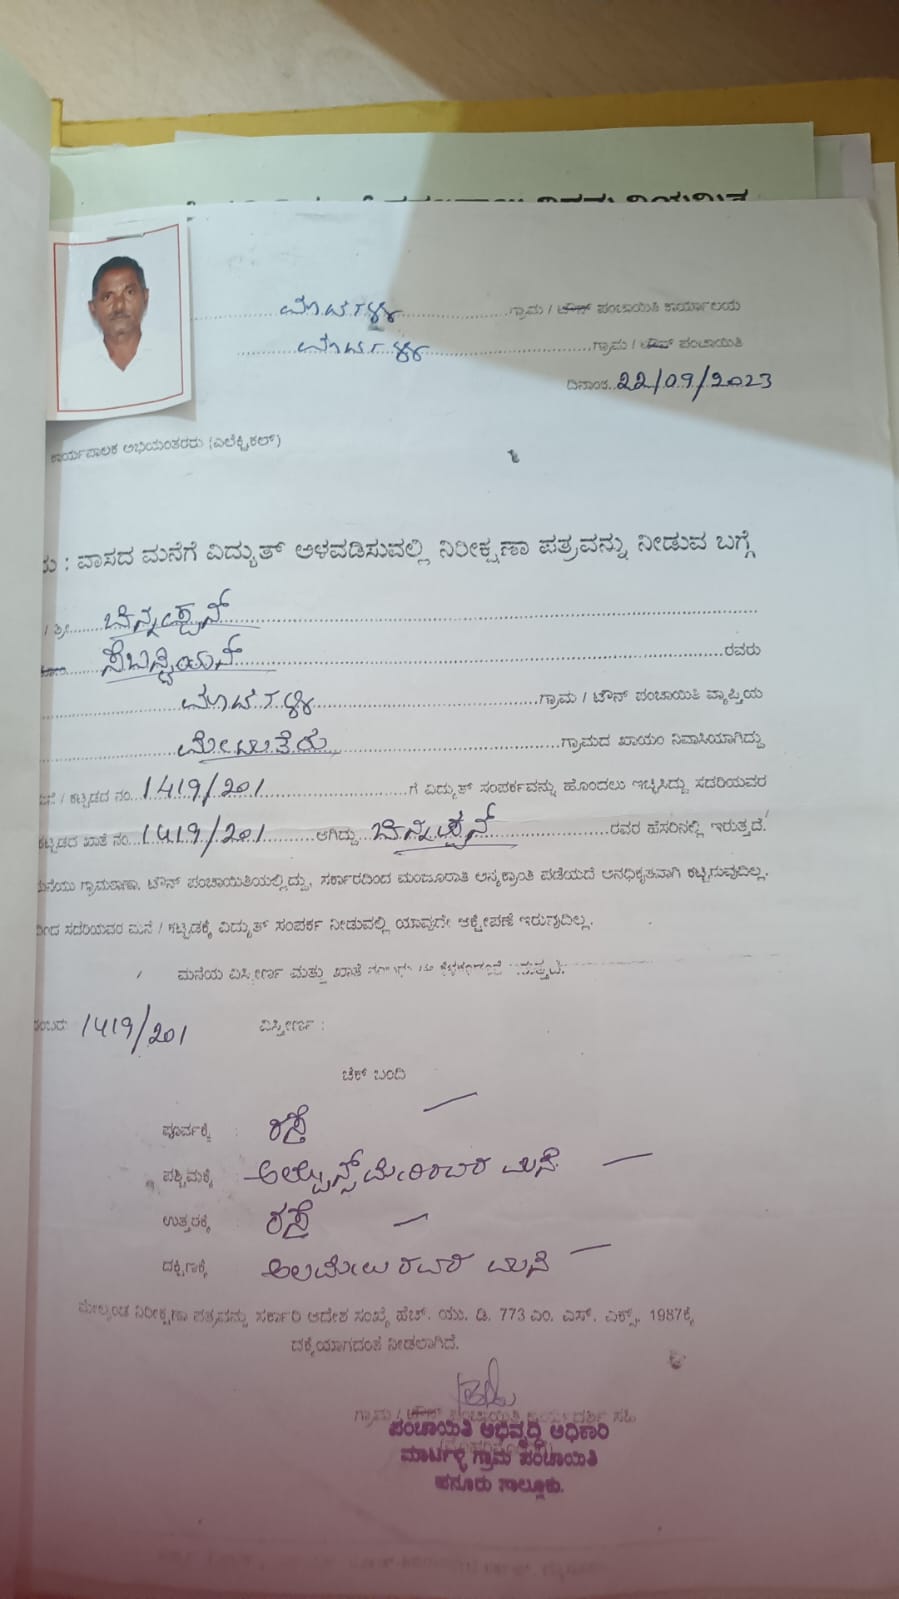 ಮಾರ್ಟಳ್ಳಿ ಗ್ರಾಮ / ಟೌನ್ ಪಂಚಾಯಿತಿ ಕಾರ್ಯಾಲಯ
ಮಾರ್ಟಳ್ಳಿ ಗ್ರಾಮ / ಟೌನ್ ಪಂಚಾಯಿತಿ
ದಿನಾಂಕ 22/09/2023
ಕಾರ್ಯಪಾಲಕ ಅಭಿಯಂತರರು (ಎಲೆಕ್ಟ್ರಿಕಲ್)
: ವಾಸದ ಮನೆಗೆ ವಿದ್ಯುತ್ ಅಳವಡಿಸುವಲ್ಲಿ ನಿರೀಕ್ಷಣಾ ಪತ್ರವನ್ನು ನೀಡುವ ಬಗ್ಗೆ
/ ಶ್ರೀ ಚಿನ್ನಪ್ಪನ್
ಸೆಬಾಸ್ಟಿಯನ್ ರವರು
ಮಾರ್ಟಳ್ಳಿ ಗ್ರಾಮ / ಟೌನ್ ಪಂಚಾಯಿತಿ ವ್ಯಾಪ್ತಿಯ
ಮೇಟುತೆರು ಗ್ರಾಮದ ಖಾಯಂ ನಿವಾಸಿಯಾಗಿದ್ದು
/ ಕಟ್ಟಡದ ನಂ 1419/201 ಗೆ ವಿದ್ಯುತ್ ಸಂಪರ್ಕವನ್ನು ಹೊಂದಲು ಇಚ್ಛಿಸಿದ್ದು ಸದರಿಯವರ
ಕಟ್ಟಡದ ಖಾತೆ ನಂ 1419/201 ಆಗಿದ್ದು ಚಿನ್ನಪ್ಪನ್ ರವರ ಹೆಸರಿನಲ್ಲಿ ಇರುತ್ತದೆ.
ಮನೆಯು ಗ್ರಾಮಠಾಣಾ, ಟೌನ್ ಪಂಚಾಯಿತಿಯಲ್ಲಿದ್ದು, ಸರ್ಕಾರದಿಂದ ಮಂಜೂರಾತಿ ಅನ್ಯಕ್ರಾಂತಿ ಪಡೆಯದೆ ಅನಧಿಕೃತವಾಗಿ ಕಟ್ಟಿಸುವುದಿಲ್ಲ.
ಸದರಿಯವರ ಮನೆ / ಕಟ್ಟಡಕ್ಕೆ ವಿದ್ಯುತ್ ಸಂಪರ್ಕ ನೀಡುವಲ್ಲಿ ಯಾವುದೇ ಆಕ್ಷೇಪಣೆ ಇರುವುದಿಲ್ಲ.
ಮನೆಯ ವಿಸ್ತೀರ್ಣ ಮತ್ತು ಖಾತೆ
1419/201 ವಿಸ್ತೀರ್ಣ :
ಚೆಕ್ ಬಂದಿ
ಪೂರ್ವಕ್ಕೆ : ರಸ್ತೆ
ಪಶ್ಚಿಮಕ್ಕೆ ಮನೆ
ಉತ್ತರಕ್ಕೆ : ರಸ್ತೆ
ದಕ್ಷಿಣಕ್ಕೆ ಅಲಮೇಲು ರವರ ಮನೆ
ಮೇಲ್ಕಂಡ ನಿರೀಕ್ಷಣಾ ಪತ್ರವನ್ನು ಸರ್ಕಾರಿ ಆದೇಶ ಸಂಖ್ಯೆ ಹೆಚ್. ಯು. ಡಿ. 773 ಎಂ. ಎಸ್. ಎಕ್ಸ್. 1987ಕ್ಕೆ
ದಕ್ಕೆಯಾಗದಂತೆ ನೀಡಲಾಗಿದೆ.
ಗ್ರಾಮ / ಟೌನ್ ಪಂಚಾಯಿತಿ ಕಾರ್ಯದರ್ಶಿ ಸಹಿ
ಪಂಚಾಯಿತಿ ಅಭಿವೃದ್ಧಿ ಅಧಿಕಾರಿ
ಮಾರ್ಟಳ್ಳಿ ಗ್ರಾಮ ಪಂಚಾಯಿತಿ
ಹನೂರು ತಾಲ್ಲೂಕು.